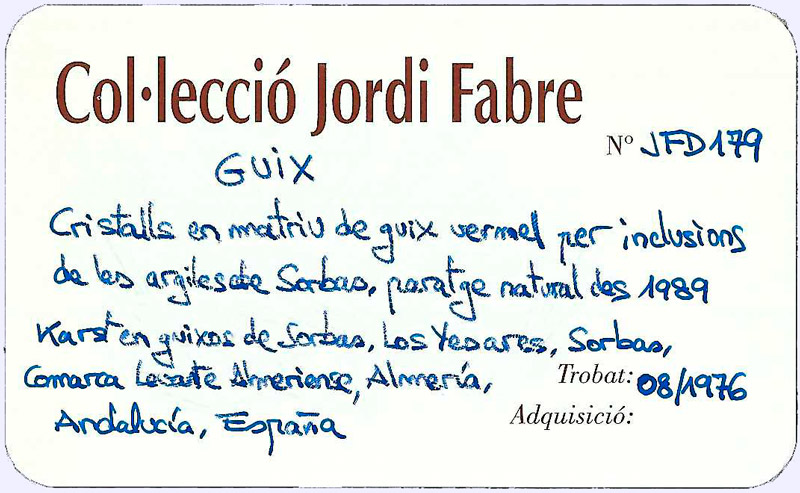 Col·lecció Jordi Fabre
Nº JFD179
GUIX
Cristalls en matriu de guix vermel per inclusions
de les argiles de Sorbas, paratge natural des 1989
Karst en guixos de Sorbas, Los Yesares, Sorbas,
Comarca Levante Almeriense, Almería,
Trobat: 08/1976
Andalucía, España
Adquisició: